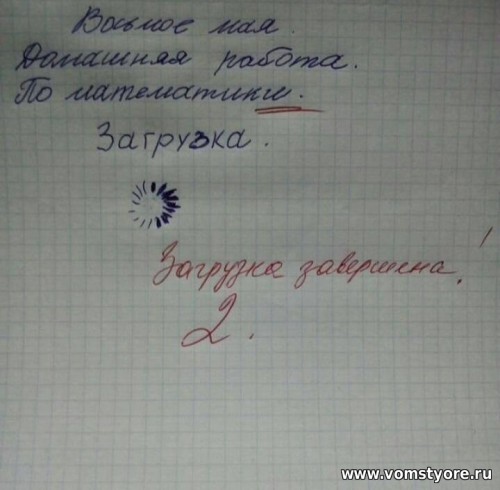 Восьмое мая.
Домашняя работа.
По математики.
Загрузка.
Загрузка завершена!
2.
www.vomstyore.ru